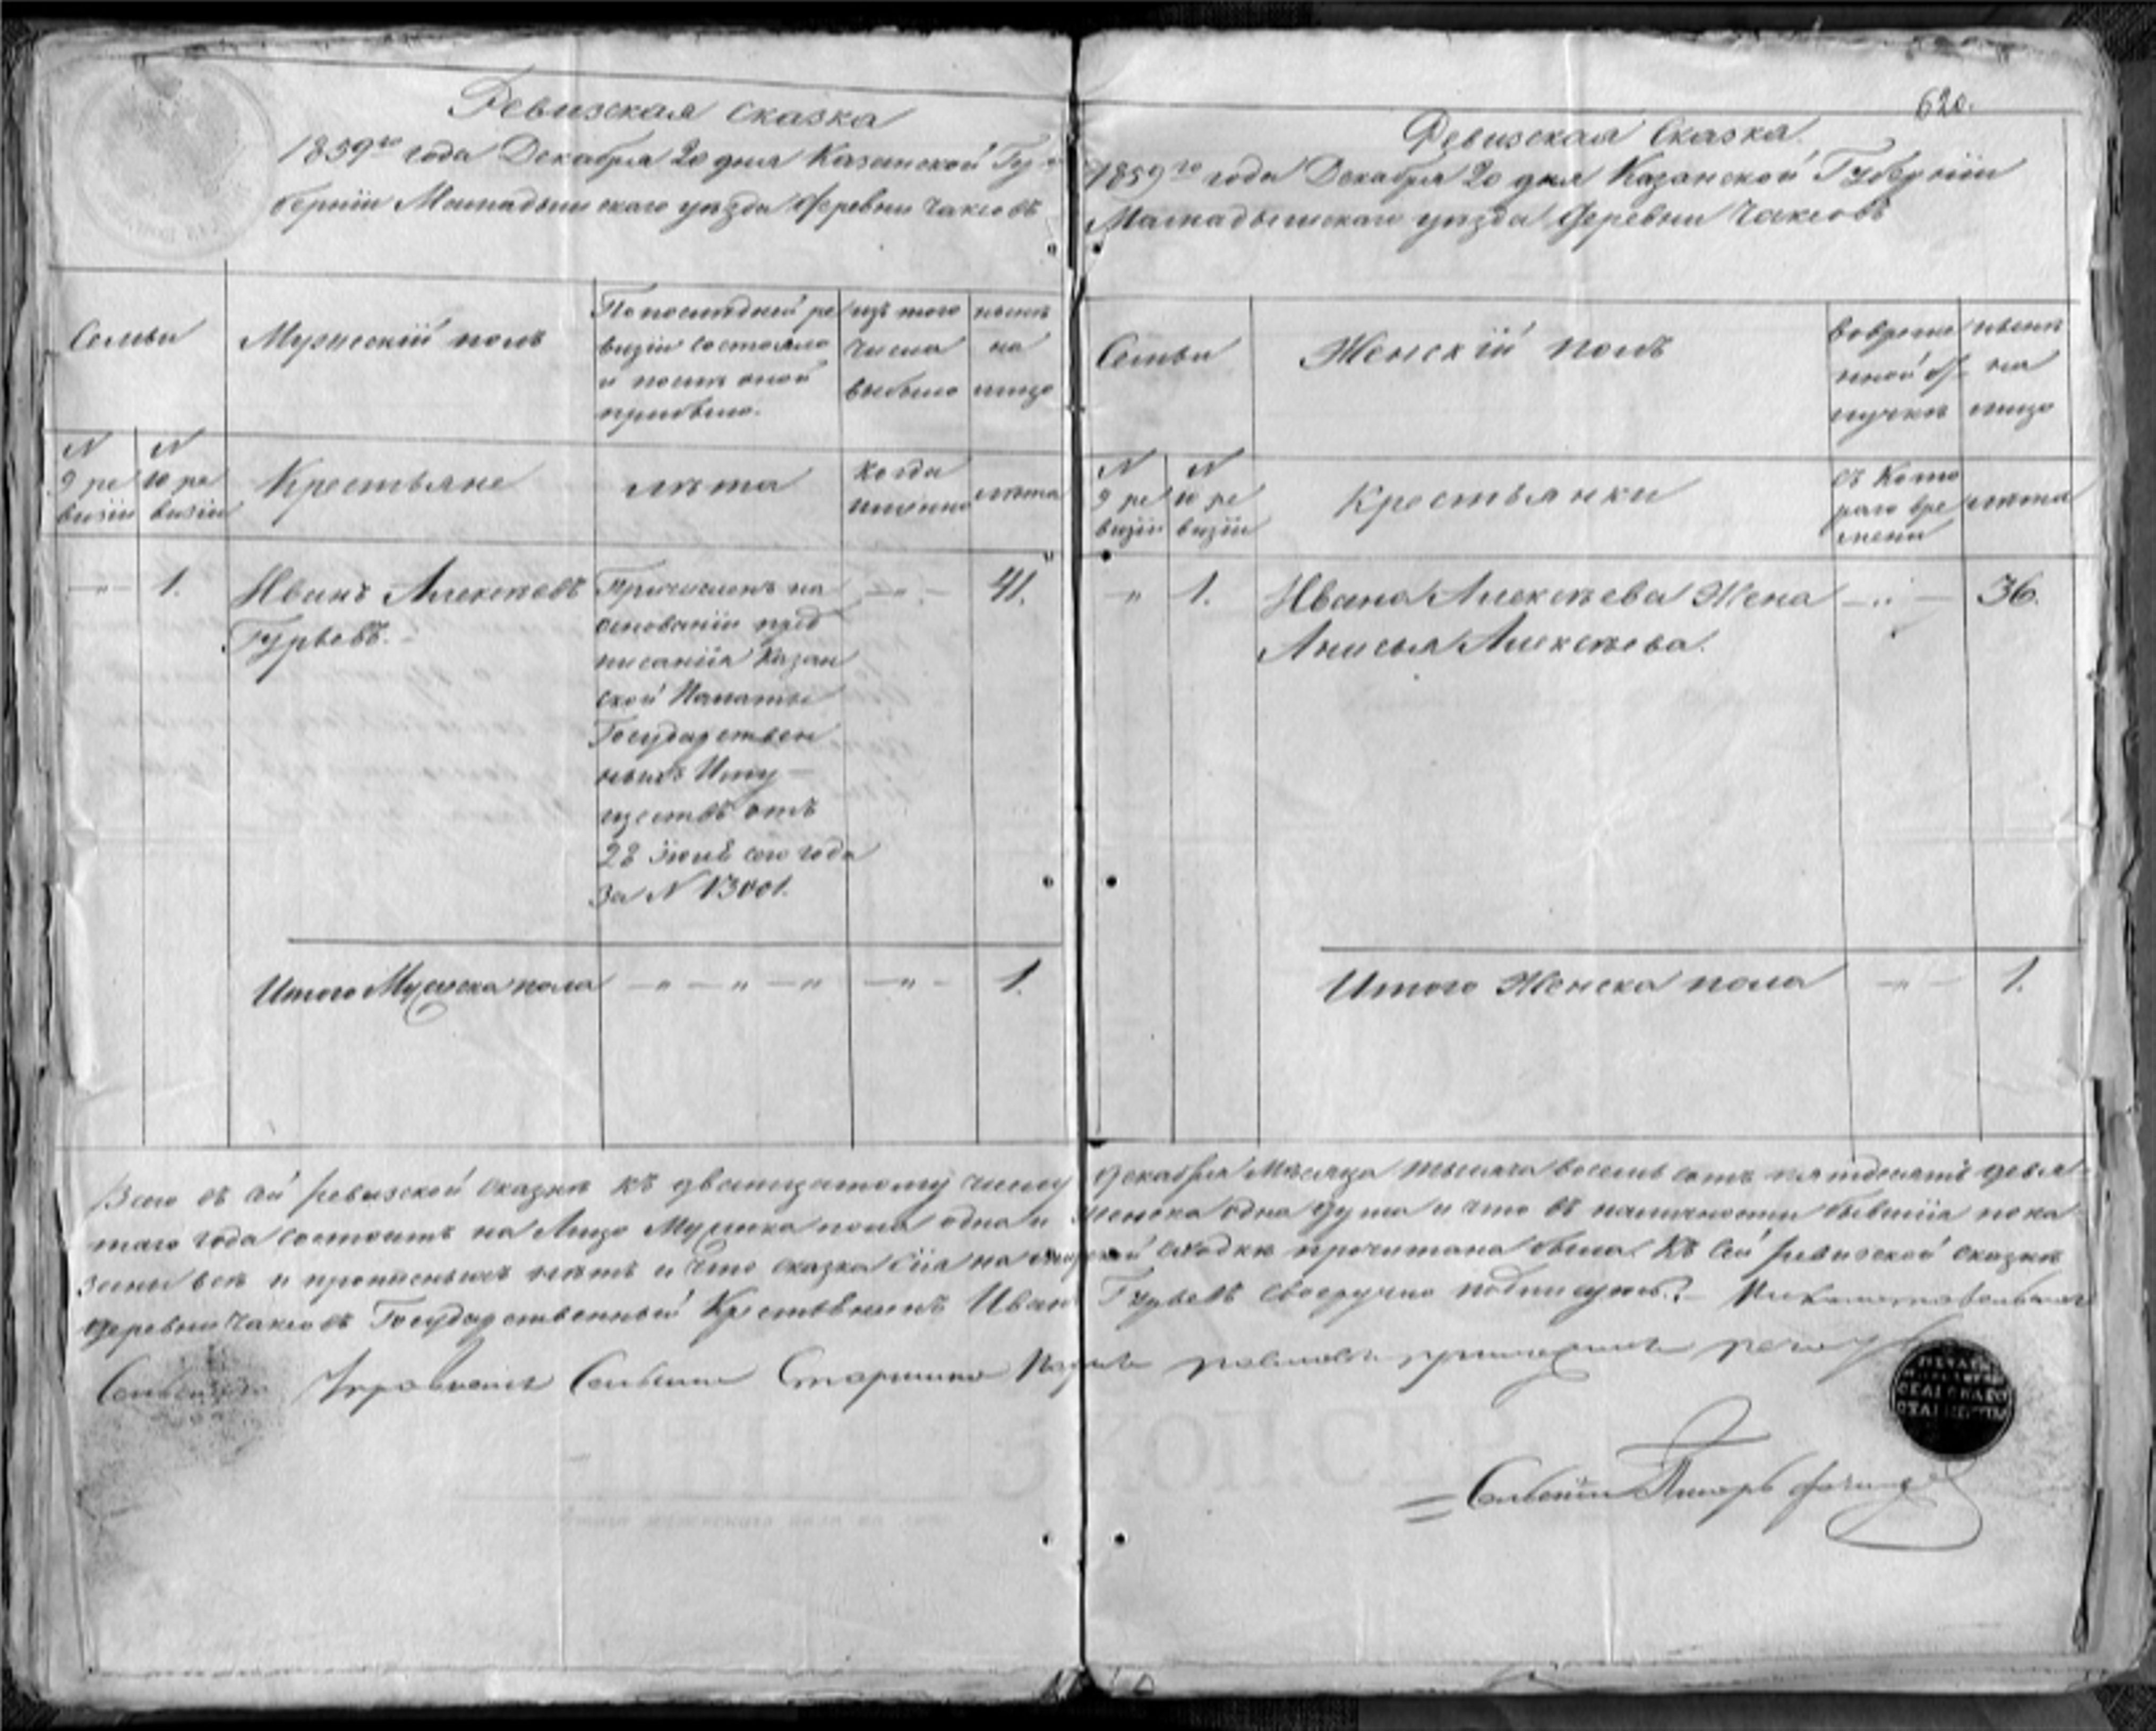 Ревизская сказка
1859го года Декабря 20 дня Казанской Гу-
берніи Мамадышскаго уѣзда деревни Чаксовъ
Семьи
Мужескій полъ
По послѣдней ре
визіи состояло
и послѣ оной
прибыло.
изъ того
числа
выбыло
нынѣ
на
лицо
N
9 ре
визіи
N
10 ре
визіи
Крестьяне
лѣта
когда
именно
лѣта
1.
Иванъ Алексѣевъ
Гурьевъ.
Причисленъ на
основаніи пред
писанія Казан
ской Палаты
Государствен
ныхъ Иму-
ществъ отъ
28 Іюля сего года
за N 13001.
41.
Итого Мужеска пола
1.
620.
Ревизская Сказка.
1859го года Декабря 20 дня Казанской Губерніи
Мамадышскаго уѣзда деревни Чаксовъ
Семьи
Женскій полъ
во време
нной от
лучкѣ
нынѣ
на
лицо
N
9 ре
визіи
N
10 ре
визіи
Крестьянки
съ кото
раго вре
мени
лѣта
1.
Ивана Алексѣева Жена
Анисья Алексѣева.
36.
Итого Женска пола
1.
Всего въ сей ревизской сказкѣ къ двадцатому числу декабря мѣсяца тысяча восемь сотъ пятдесятъ девя-
таго года состоитъ на Лицо Мужеска пола одна и женска одна душа и что въ наличности бывшія пока
заны всѣ и пропитенныхъ нѣтъ и что сказка сія на мирской сходкѣ прочитана была. Къ сей ревизской сказкѣ
деревни Чаксовъ Государственный Крестьянинъ Иванъ Гурьевъ своеручно подписуюсь.
Сельской Старшина
ПЕЧАТЬ
СЕЛЬСКАГО
Сельскій Писарь